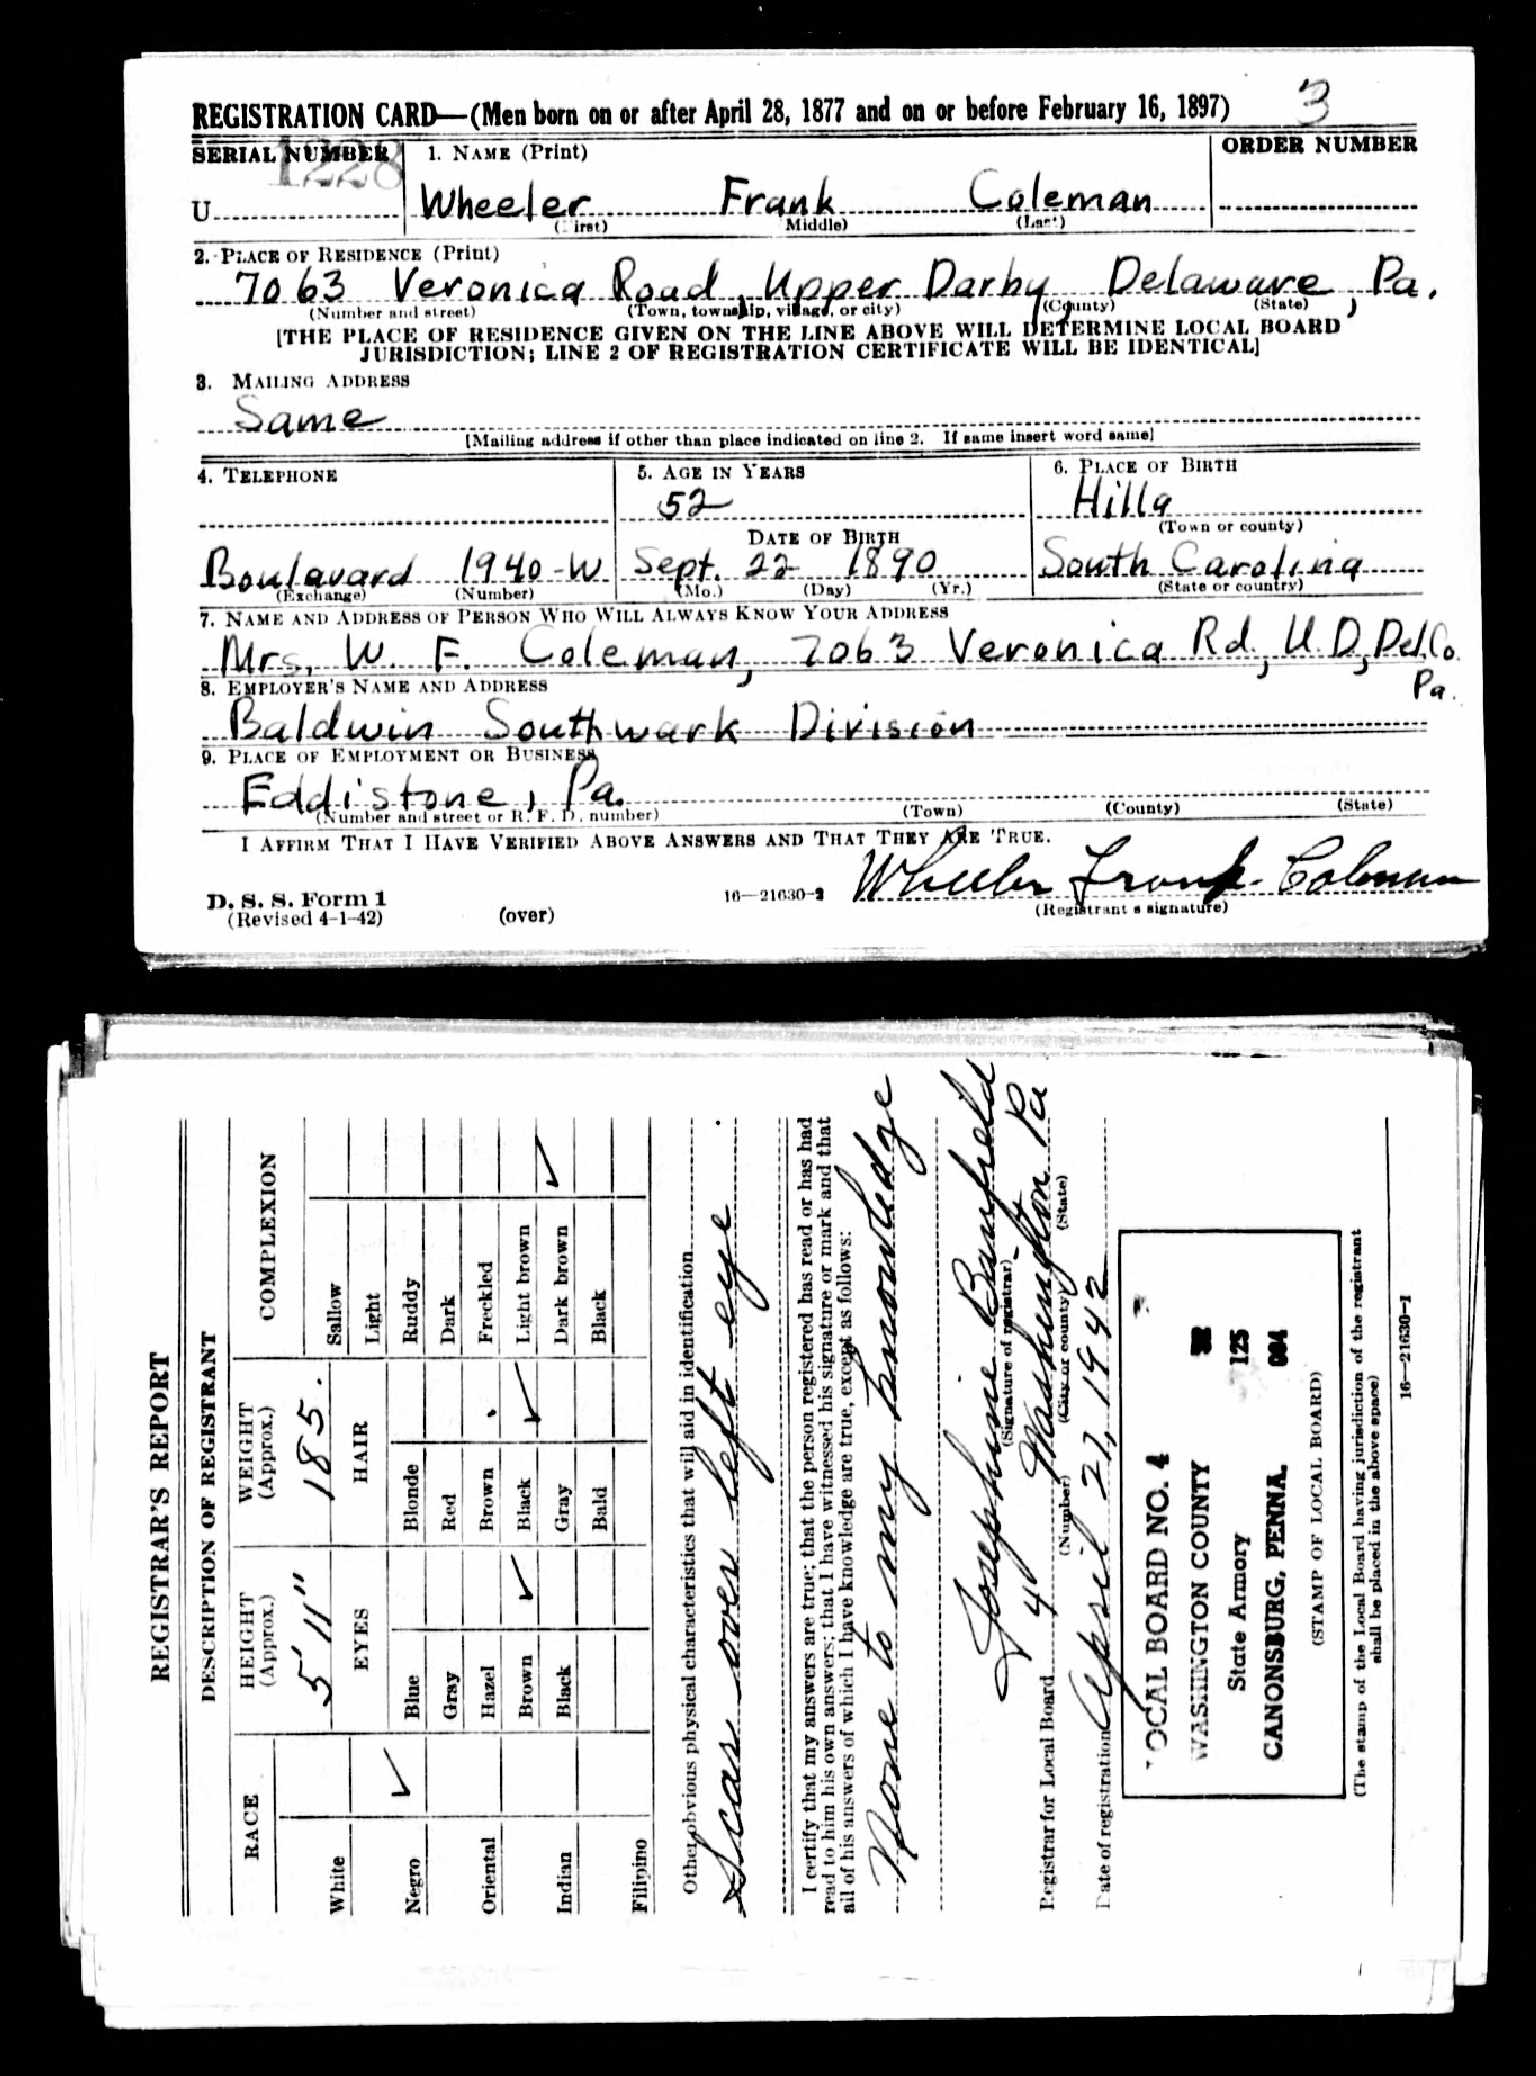 REGISTRATION CARD—(Men born on or after April 28, 1877 and on or before February 16, 1897) 3
SERIAL NUMBER 1. NAME (Print) ORDER NUMBER
1228
U Wheeler Frank Coleman
(First) Middle) (Last)
2. PLACE OF RESIDENCE (Print)
7063 Veronica Road, Upper Darby, Delaware, Pa.
(Number and street) (Town, township, village, or city) (County) (State)
[THE PLACE OF RESIDENCE GIVEN ON THE LINE ABOVE WILL DETERMINE LOCAL BOARD
JURISDICTION; LINE 2 OF REGISTRATION CERTIFICATE WILL BE IDENTICAL]
3. MAILING ADDRESS
Same
[Mailing address if other than place indicated on line 2. If same insert word same]
4. TELEPHONE 5. AGE IN YEARS 6. PLACE OF BIRTH
52 Hilla
(Town or county)
DATE OF BIRTH
Boulavard 1940-W Sept. 22 1890 South Carolina
(Exchange) (Number) (Mo.) (Day) (Yr.) (State or country)
7. NAME AND ADDRESS OF PERSON WHO WILL ALWAYS KNOW YOUR ADDRESS
Mrs. W. F. Coleman, 7063 Veronica Rd., U.D., Del.Co.
Pa.
8. EMPLOYER'S NAME AND ADDRESS
Baldwin Southwark Division
9. PLACE OF EMPLOYMENT OR BUSINESS
Eddistone, Pa.
(Number and street or R. F. D. number) (Town) (County) (State)
I AFFIRM THAT I HAVE VERIFIED ABOVE ANSWERS AND THAT THEY ARE TRUE.
Wheeler Frank Coleman
D. S. S. Form 1 16—21630-2 (Registrant's signature)
(Revised 4-1-42) (over)
REGISTRAR'S REPORT
DESCRIPTION OF REGISTRANT
RACE HEIGHT (Approx.) WEIGHT (Approx.) COMPLEXION
5' 11" 185.
EYES HAIR
White Sallow
Light
Negro ✓ Blue Blonde Ruddy
Gray Red Dark
Oriental Hazel Brown Freckled
Brown ✓ Black ✓ Light brown
Indian Black Gray Dark brown ✓
Bald Black
Filipino
Other obvious physical characteristics that will aid in identification
Scar over left eye
I certify that my answers are true; that the person registered has read or has had
read to him his own answers; that I have witnessed his signature or mark and that
all of his answers of which I have knowledge are true, except as follows:
None to my knowledge
Josephine Banfield
(Signature of registrar)
Registrar for Local Board 4 Washington Pa
(Number) (City or county) (State)
Date of registration April 27, 1942
LOCAL BOARD NO. 4
WASHINGTON COUNTY
State Armory 125
CANONSBURG, PENNA. 004
(STAMP OF LOCAL BOARD)
(The stamp of the Local Board having jurisdiction of the registrant
shall be placed in the above space)
16—21630-1